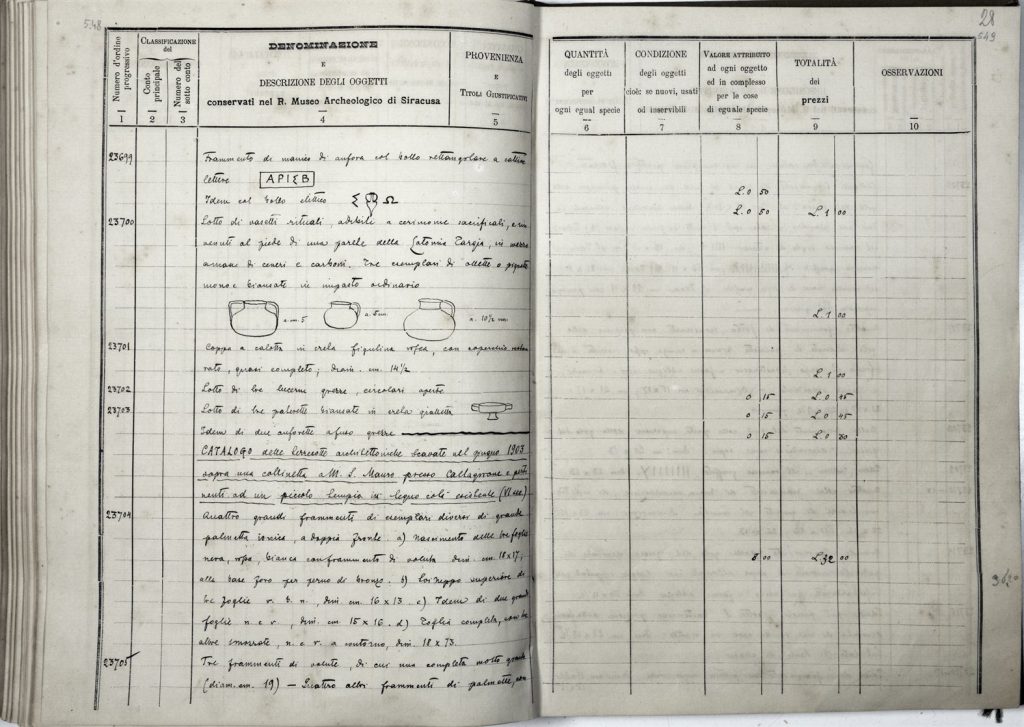 548
28
549
Numero d'ordine progressivo
CLASSIFICAZIONE
del
Conto principale
Numero del sotto conto
DENOMINAZIONE
E
DESCRIZIONE DEGLI OGGETTI
conservati nel R. Museo Archeologico di Siracusa
PROVENIENZA
E
TITOLI GIUSTIFICATIVI
1 2 3 4 5
QUANTITÀ
degli oggetti
per
ogni egual specie
CONDIZIONE
degli oggetti
cioè: se nuovi, usati
od inservibili
VALORE ATTRIBUITO
ad ogni oggetto
ed in complesso
per le cose
di eguale specie
TOTALITÀ
dei
prezzi
OSSERVAZIONI
6 7 8 9 10
23699 Frammento di manico di anfora col bollo rettangolare a cattive
lettere ΑΡΙΣΒ L. 0 50
Idem col bollo ellittico Σ Ω L. 0 50 L. 1 00
23700 Lotto di vasetti rituali, adibili a cerimonie sacrificali, e rin
venuti al piede di una parete della Latomia Targia, in mezzo
a masse di ceneri e carboni. Tre esemplari di ollette o pignatte
mono e biansate in impasto ordinario
a. cm. 5 a. 5 cm. a. 10½ cm. L. 1 00
23701 Coppa a calotta in creta figulina rossa, con coperchio restau
rato, quasi completo; diam. cm. 14½ L. 1 00
23702 Lotto di tre lucerne grezze, circolari aperte 0 15 L. 0 45
23703 Lotto di tre palette biansate in creta gialletta 0 15 L. 0 45
Idem di due anforette a fuso grezze 0 15 L. 0 30
CATALOGO delle terrecotte architettoniche scavate nel giugno 1903
sopra una collinetta a M. S. Mauro presso Caltagirone e perti
nenti ad un piccolo tempio in legno colà esistente (VI sec.)
23704 Quattro grandi frammenti di esemplari diversi di grande
palmetta ionica, a doppia fronte. a) Nascimento delle tre foglie
nera, rossa, bianca con frammento di voluta dim. cm. 18 x 17; 8 00 L. 32 00
alla base foro per perno di bronzo. b) superiore di
tre foglie r. b. n., dim. cm. 16 x 13 c) Idem di due grandi
foglie n. e r., dim. cm. 15 x 16. d) Foglia completa, con tre
altre smozzate, n. e r. a contorno, dim. 18 x 73.
23705 Tre frammenti di volute, di cui una completa molto grande
(diam. cm. 19) — Quattro altri frammenti di palmette, con